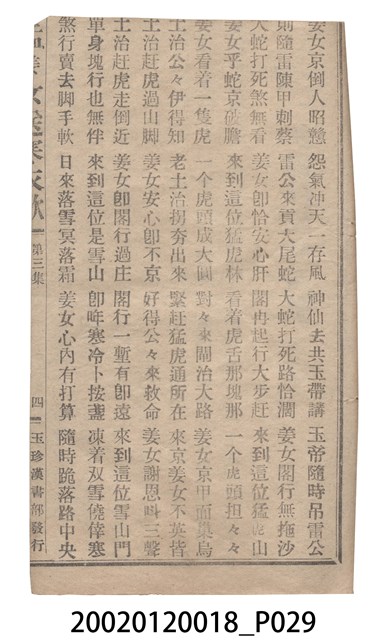 姜女京倒人昭戇 怨氣冲天一存風 神仙去共玉帶講 玉帝隨時吊雷公
則隨雷陳甲刺蔡 雷公來貢大尾蛇 大蛇打死路恰濶 姜女閣行無拖沙
大蛇打死煞無看 姜女卽恰安心肝 閣冉起行大步赶 來到這位猛虎山
姜女乎蛇京破膽 來到這位猛虎林 看着虎舌那塊那 一个虎頭担々々
姜女看着一隻虎 一个虎頭成大圓 對々來閘治大路 姜女京甲面巢烏
土治公々伊得知 老土治拐夯出來 緊赶猛虎通所在 來京姜女不英皆
土治赶虎過山脚 姜女安心卽不京 好得公々來救命 姜女謝恩叫三聲
土治赶虎走倒近 姜女卽閣行過庄 閣行一塹有卽遠 來到這位雪山門
單身塊行也無伴 來到這位是雪山 卽時寒冷卜按盞 凍着双雪僥倖寒
煞行賣去脚手軟 日來落雪冥落霜 姜女心內有打算 隨時跪落路中央
姜女送寒衣歌 第三集 四 玉珍漢書部發行
20020120018_P029